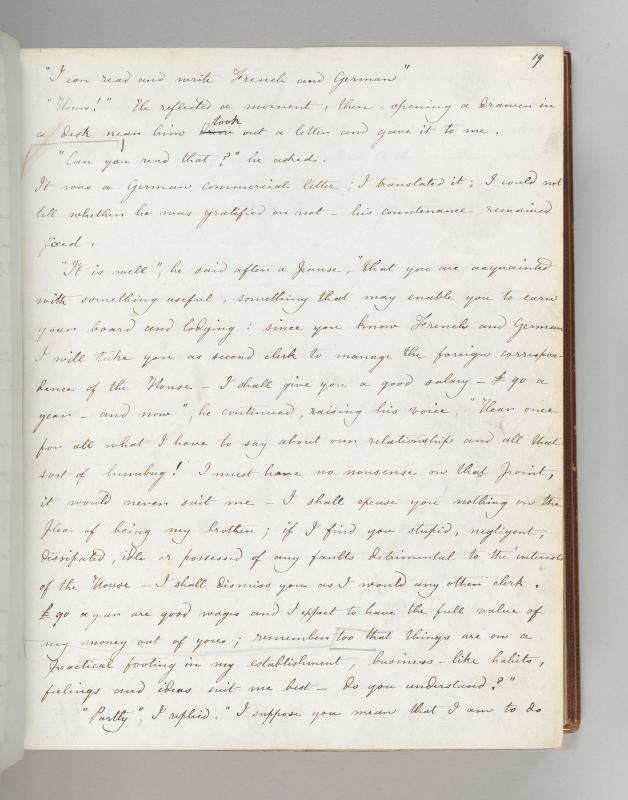 19
"I can read and write French and German"
"Umm!" He reflected a moment, then - opening a drawer in
a desk near him took out a letter and gave it to me.
"Can you read that?" he asked.
It was a German commercial letter; I translated it; I could not
tell whether he was gratified or not - his countenance remained
fixed.
"It is well", he said after a pause, "that you are acquainted
with something useful, something that may enable you to earn
your board and lodging: since you know French and German
I will take you as second clerk to manage the foreign correspon-
dence of the House - I shall give you a good salary - £ 90 a
year - and now", he continued, raising his voice, "Hear once
for all what I have to say about our relationship and all that
sort of humbug! I must have no nonsense on that point,
it would never suit me - I shall excuse you nothing on the
plea of being my brother; if I find you stupid, negligent,
dissipated, idle or possessed of any faults detrimental to the interests
of the House - I shall dismiss you as I would any other clerk.
£ 90 a year are good wages and I expect to have the full value of
my money out of you; remember too that things are on a
practical footing in my establishment, business-like habits,
feelings and ideas suit me best - do you understand?"
"Partly", I replied. "I suppose you mean that I am to do